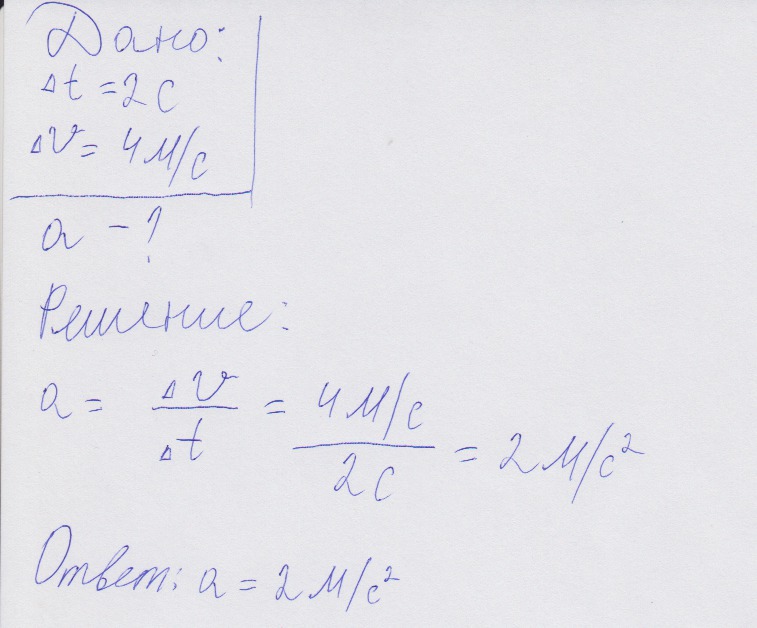 Дано:
Δt = 2 с
Δv = 4 м/с
a - ?
Решение:
a = Δv/Δt = 4 м/с / 2 с = 2 м/с²
Ответ: a = 2 м/с²